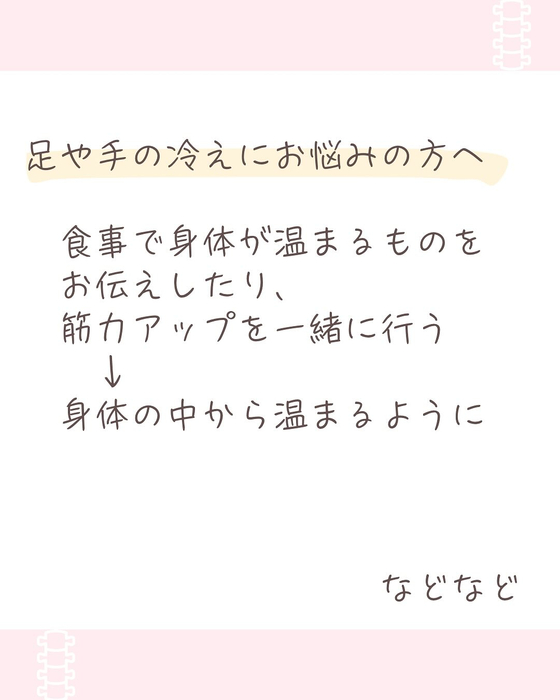 足や手の冷えにお悩みの方へ
食事で身体が温まるものを
お伝えしたり、
筋力アップを一緒に行う
↓
身体の中から温まるように
などなど